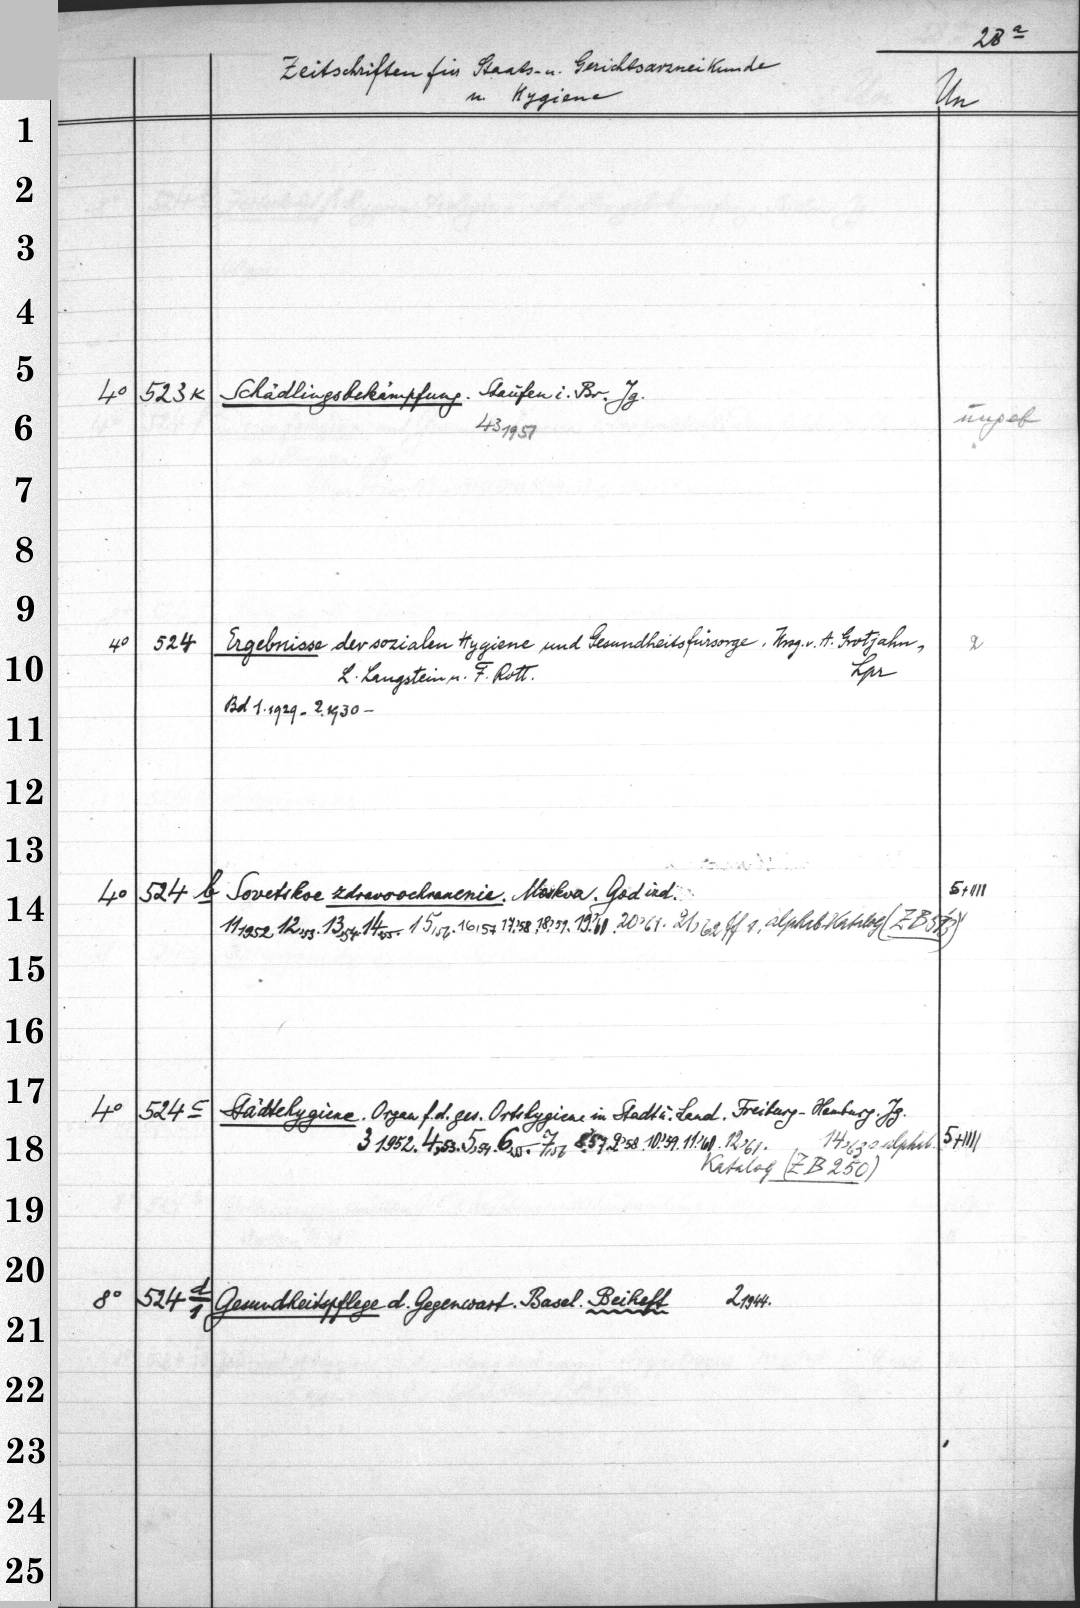 28a
Zeitschriften für Staats- u. Gerichtsarzneikunde
u. Hygiene
Un
1
2
3
4
5
4° 523 k Schädlingsbekämpfung. Staufen i. Br. Jg.
6
43 1951
ungeb
7
8
9
4° 524 Ergebnisse der sozialen Hygiene und Gesundheitsfürsorge. Hrsg. v. A. Grotjahn, 2
10
L. Langstein u. F. Rott. Lpz
Bd 1.1929- 2.1930-
11
12
13
4° 524 b Sovetskoe zdravoochranenie. Moskva. God izd. 5+IIII
14
11 1952 12,53. 13,54. 14,55. 15,56. 16,57 17,58 18,59. 19,60. 20,61. 21,62 ff s. alphab. Katalog (ZB 573)
15
16
17
4° 524 c Städtehygiene. Organ f. d. ges. Ortshygiene in Stadt u. Land. Freiburg-Hamburg. Jg.
18
3 1952. 4,53. 5,54. 6,55- 7,56 8,57. 9,58. 10,59. 11,60. 12,61. 14,63 alphab. 5+IIII
Katalog (ZB 250)
19
20
8° 524 d/1 Gesundheitspflege d. Gegenwart. Basel. Beiheft 2 1944.
21
22
23
24
25